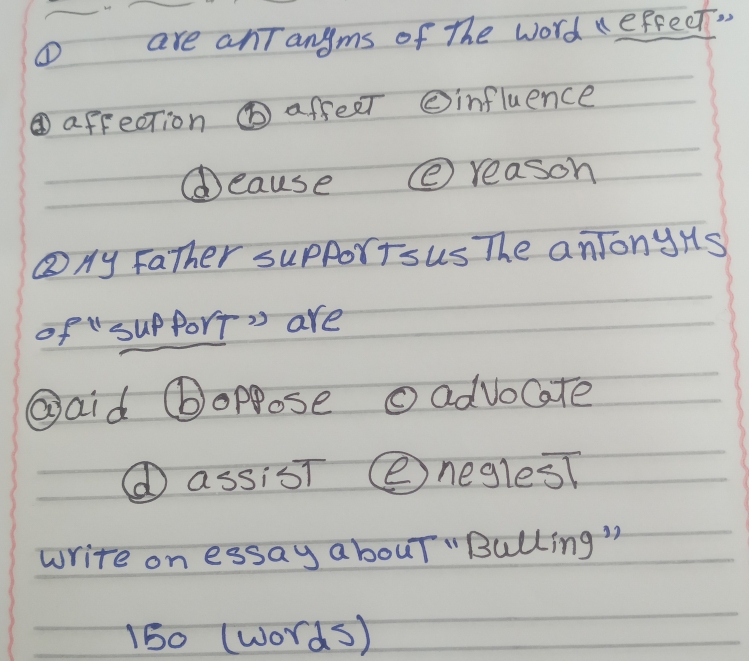 ① are antanyms of the word "effect"
ⓐ affection ⓑ affect ⓒ influence
ⓓ cause ⓔ reason
② My Father supports us The antonyms
of "support" are
ⓐ aid ⓑ oppose ⓒ advocate
ⓓ assist ⓔ neglest
write on essay about "Bulling"
150 (words)